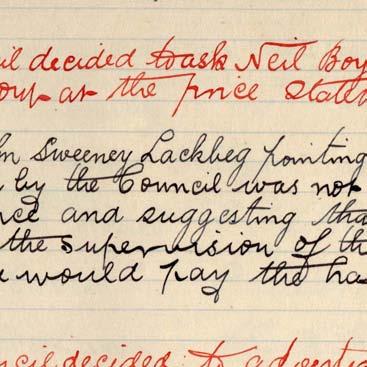 il decided to ask Neil Boy
at the price stated
hn Sweeney Lackbeg pointing
by the Council was not
nce and suggesting tha
the supervision of th
would pay the ha
ncil decided to adverti